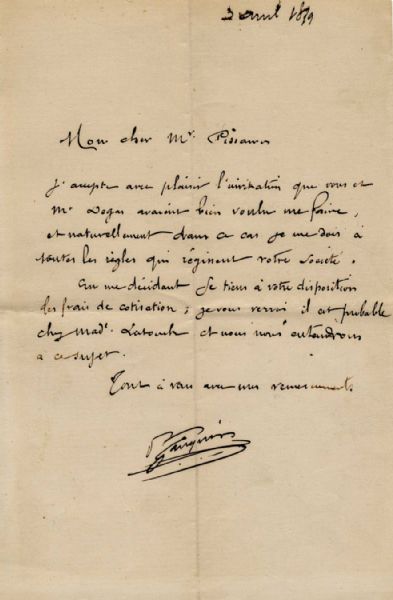 3 avril 1879
Mon cher Mr. Pissarro
J'accepte avec plaisir l'invitation que vous et
Mr Degas avaient bien voulu me faire,
et naturellement dans ce cas je me dois à
toutes les règles qui régissent votre société.
En me décidant je tiens à votre disposition
les frais de cotisation; je vous verrai il est probable
chez Made. Latouche et nous nous entendrons
à ce sujet.
Tout à vous avec mes remerciements
P. Gauguin